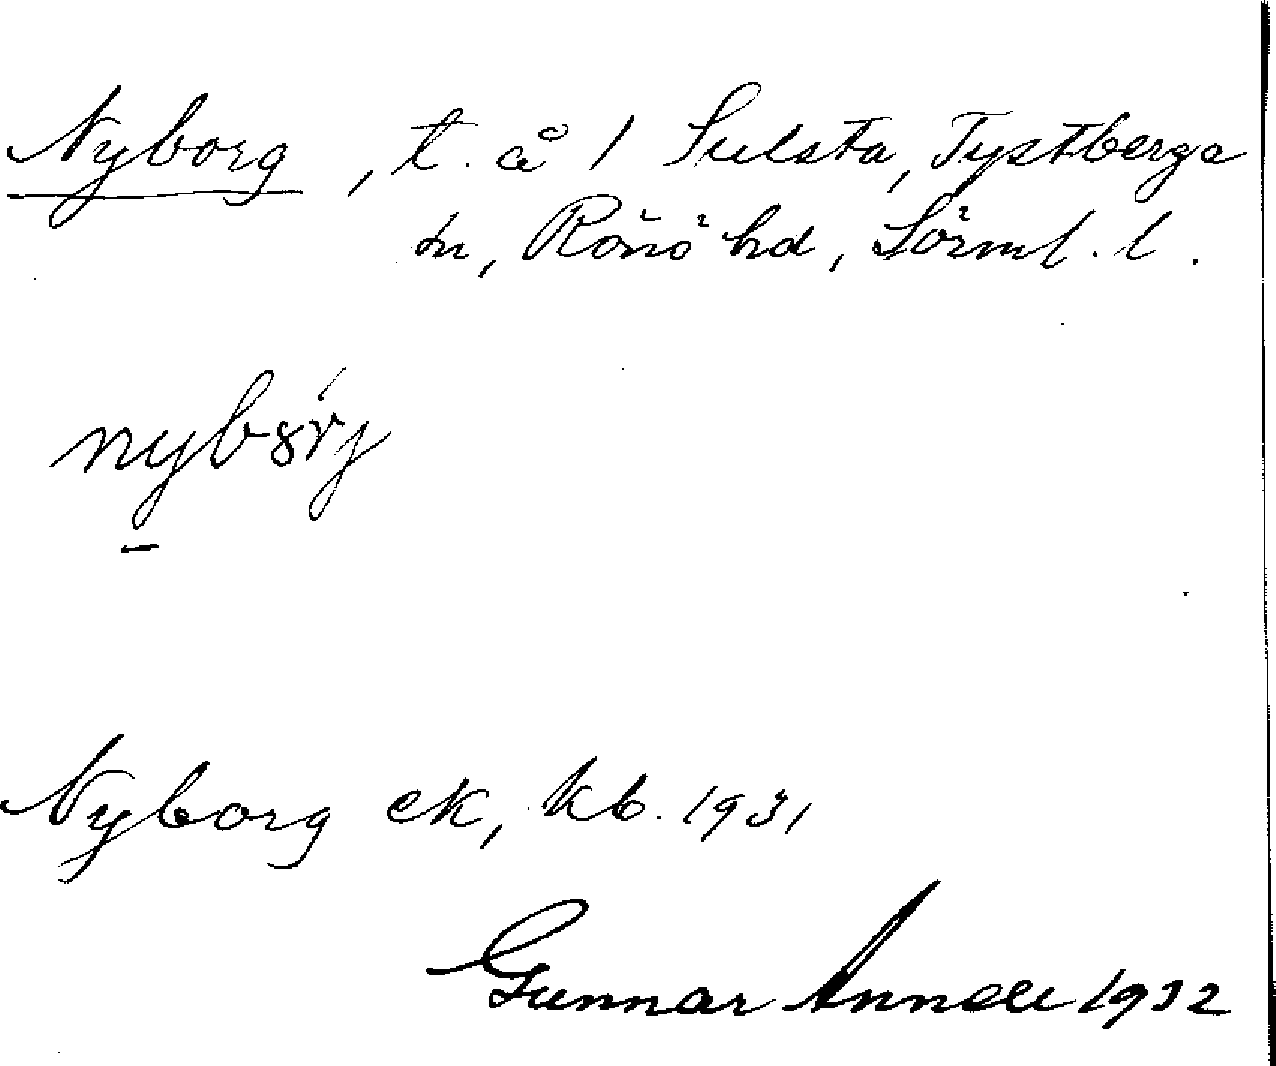 Nyborg, t. å 1 Sulsta, Tystberga
sn, Rönö hd, Sörml. l.
Nyborg ek, kb. 1931
Gunnar Annell 1932